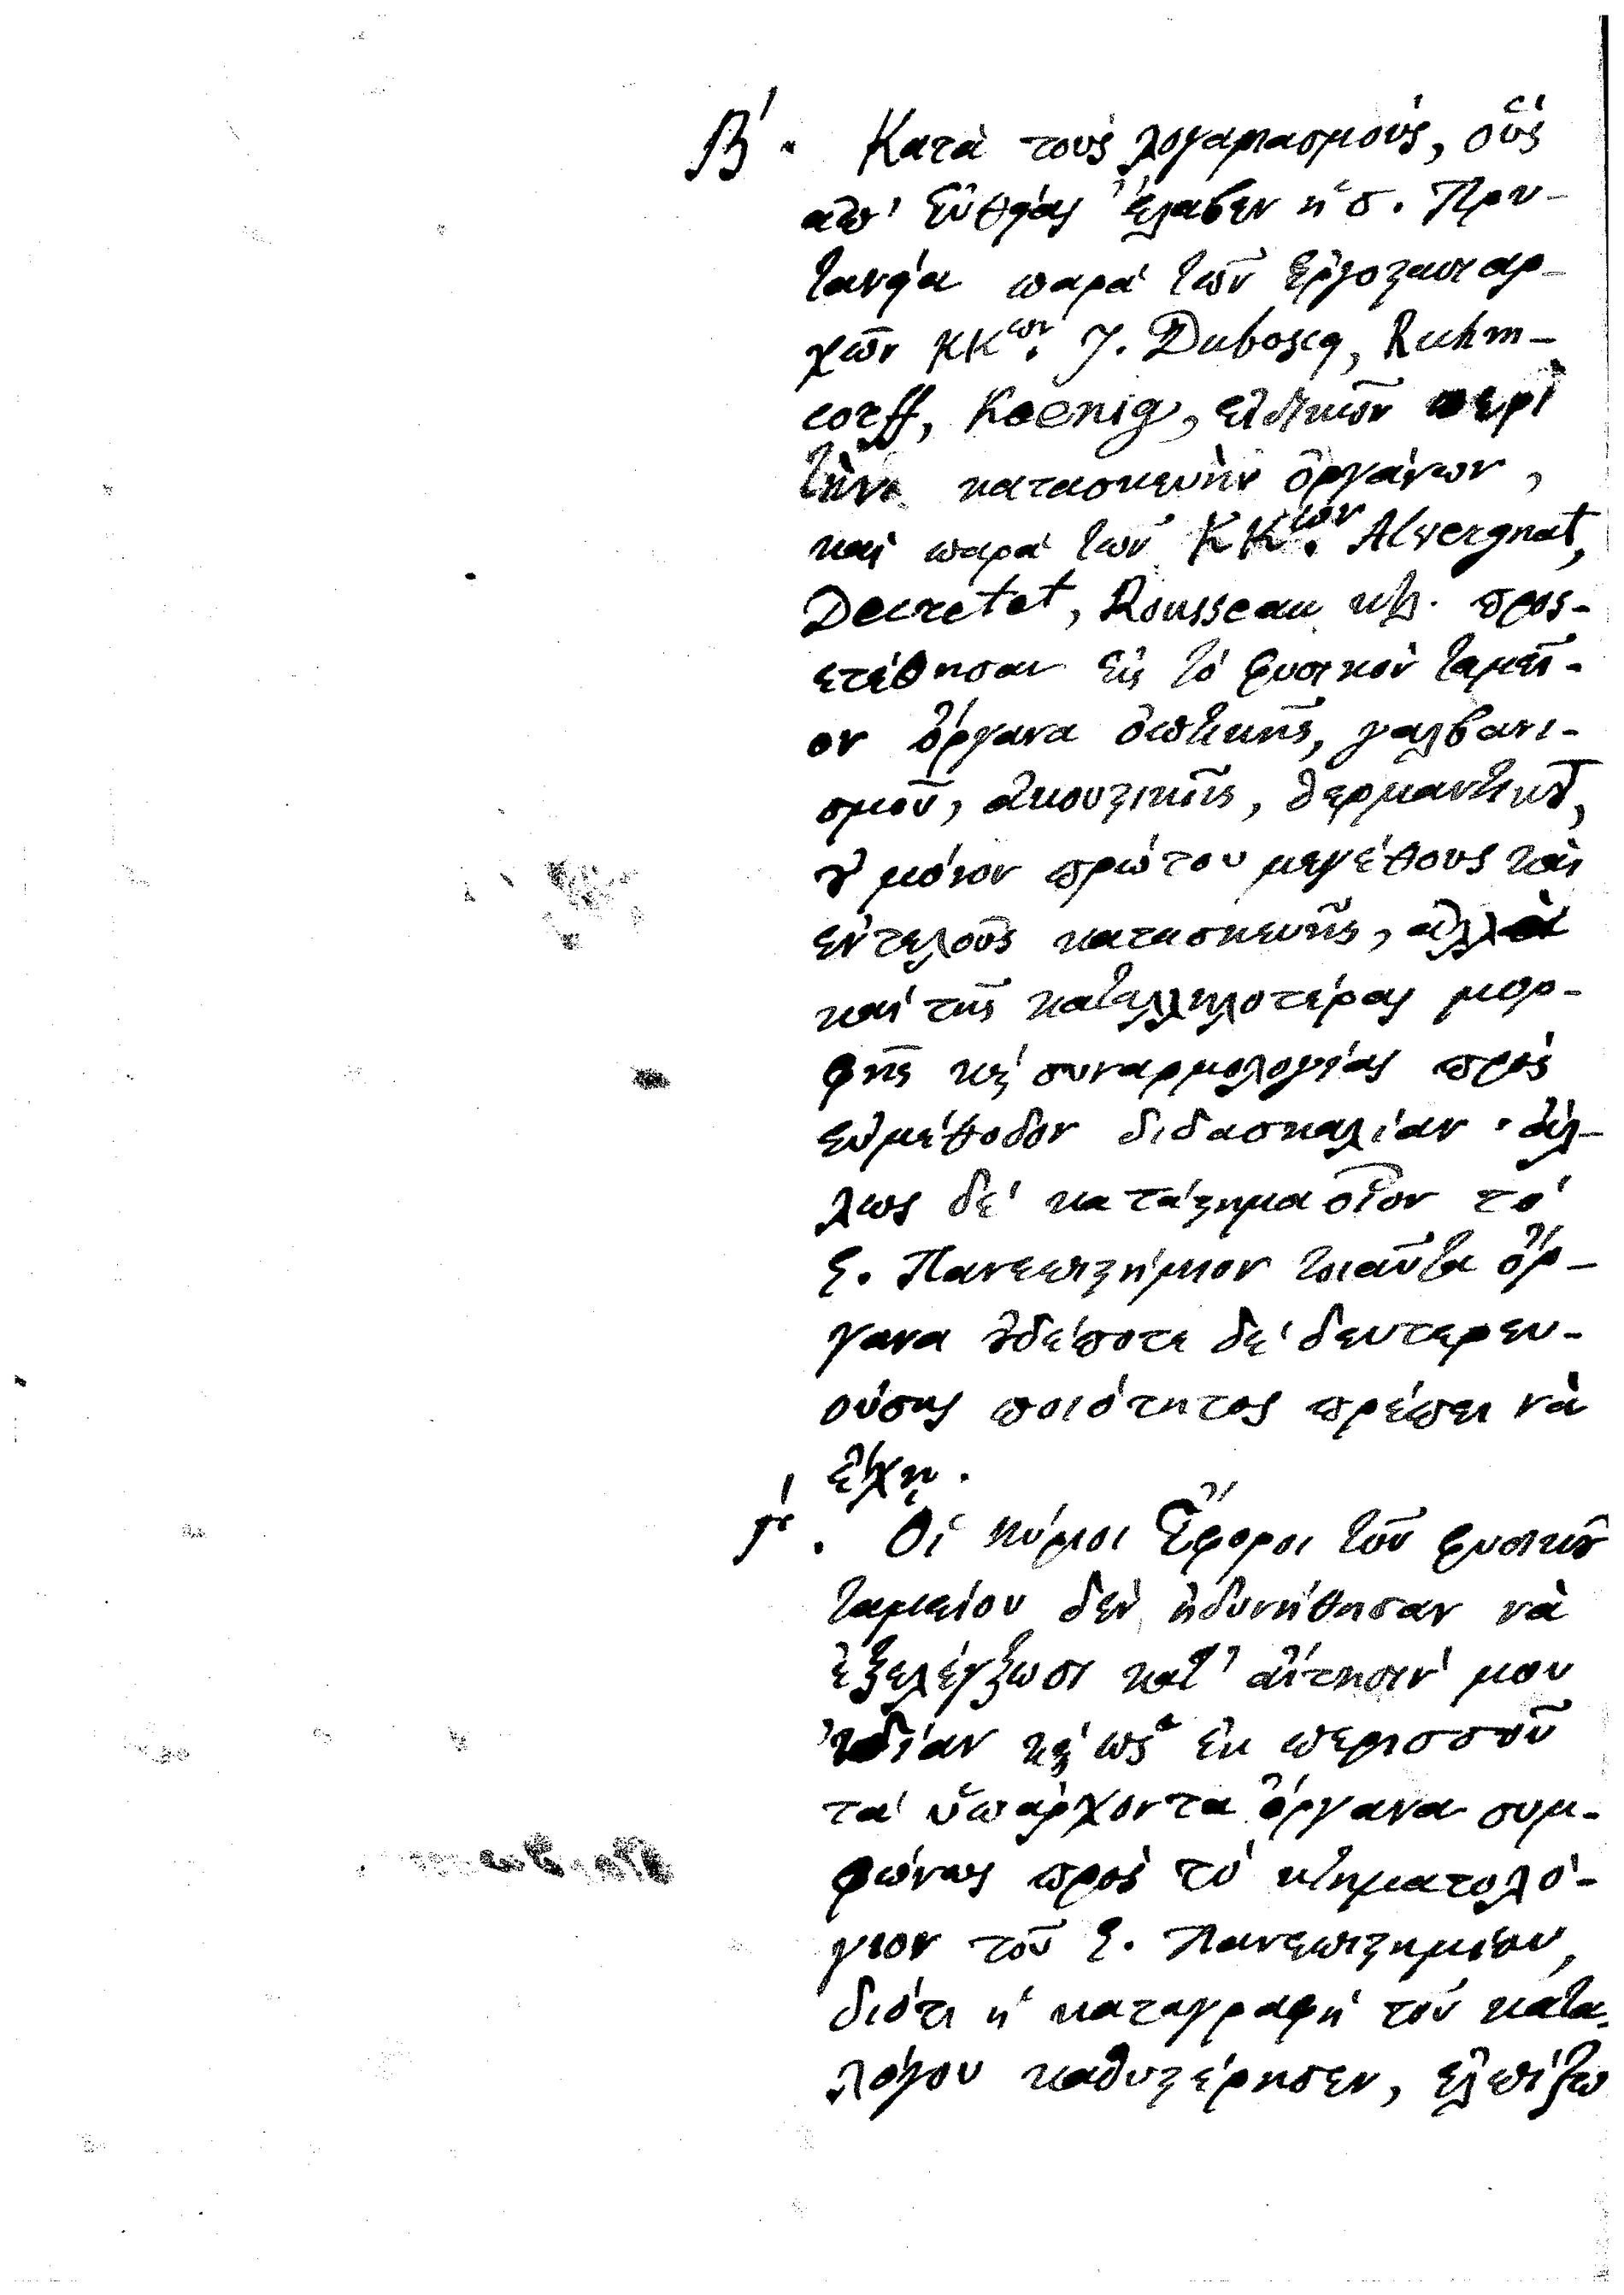 Β΄. Κατὰ τοὺς λογαριασμοὺς, οὓς
ἀπ' εὐθείας ἔλαβεν ἡ σ. Πρυ-
τανεία παρὰ τῶν ἐργοστασιαρ-
χῶν ΚΚων. J. Duboscq, Ruhm-
corff, Koenig, εἰδικῶν περὶ
τὴν κατασκευὴν ὀργάνων,
καὶ παρὰ τῶν ΚΚων. Alvergnat,
Decretet, Rousseau κτλ. προς-
ετέθησαν εἰς τὸ φυσικὸν ταμεῖ-
ον ὄργανα ὀπτικῆς, γαλβανι-
σμοῦ, ἀκουστικῆς, θερμαντικοῦ,
οὐ μόνον πρώτου μεγέθους καὶ
ἐντελοῦς κατασκευῆς, ἀλλὰ
καὶ τῆς καταλληλοτέρας μορ-
φῆς κὶ συναρμολογίας πρὸς
εὐμέθοδον διδασκαλίαν· ἄλ-
λως δὲ κατάστημα οἷον τὸ
ἐ. Πανεπιστήμιον τοιαῦτα ὄρ-
γανα οὐδέποτε δὲ δευτερευ-
ούσης ποιότητος πρέπει νὰ
ἔχῃ.
γ΄. Οἱ κύριοι Ἔφοροι τοῦ φυσικοῦ
ταμείου δὲν ἠδυνήθησαν νὰ
ἐξελέγξωσι κατ' αἴτησίν μου
ἰδίαν κὶ ὡς ἐκ περισσοῦ
τὰ ὑπάρχοντα ὄργανα συμ-
φώνως πρὸς τὸ κτηματολό-
γιον τοῦ ἐ. Πανεπιστημίου,
διότι ἡ καταγραφὴ τοῦ κατα-
λόγου καθυστέρησεν, ἐλπίζω